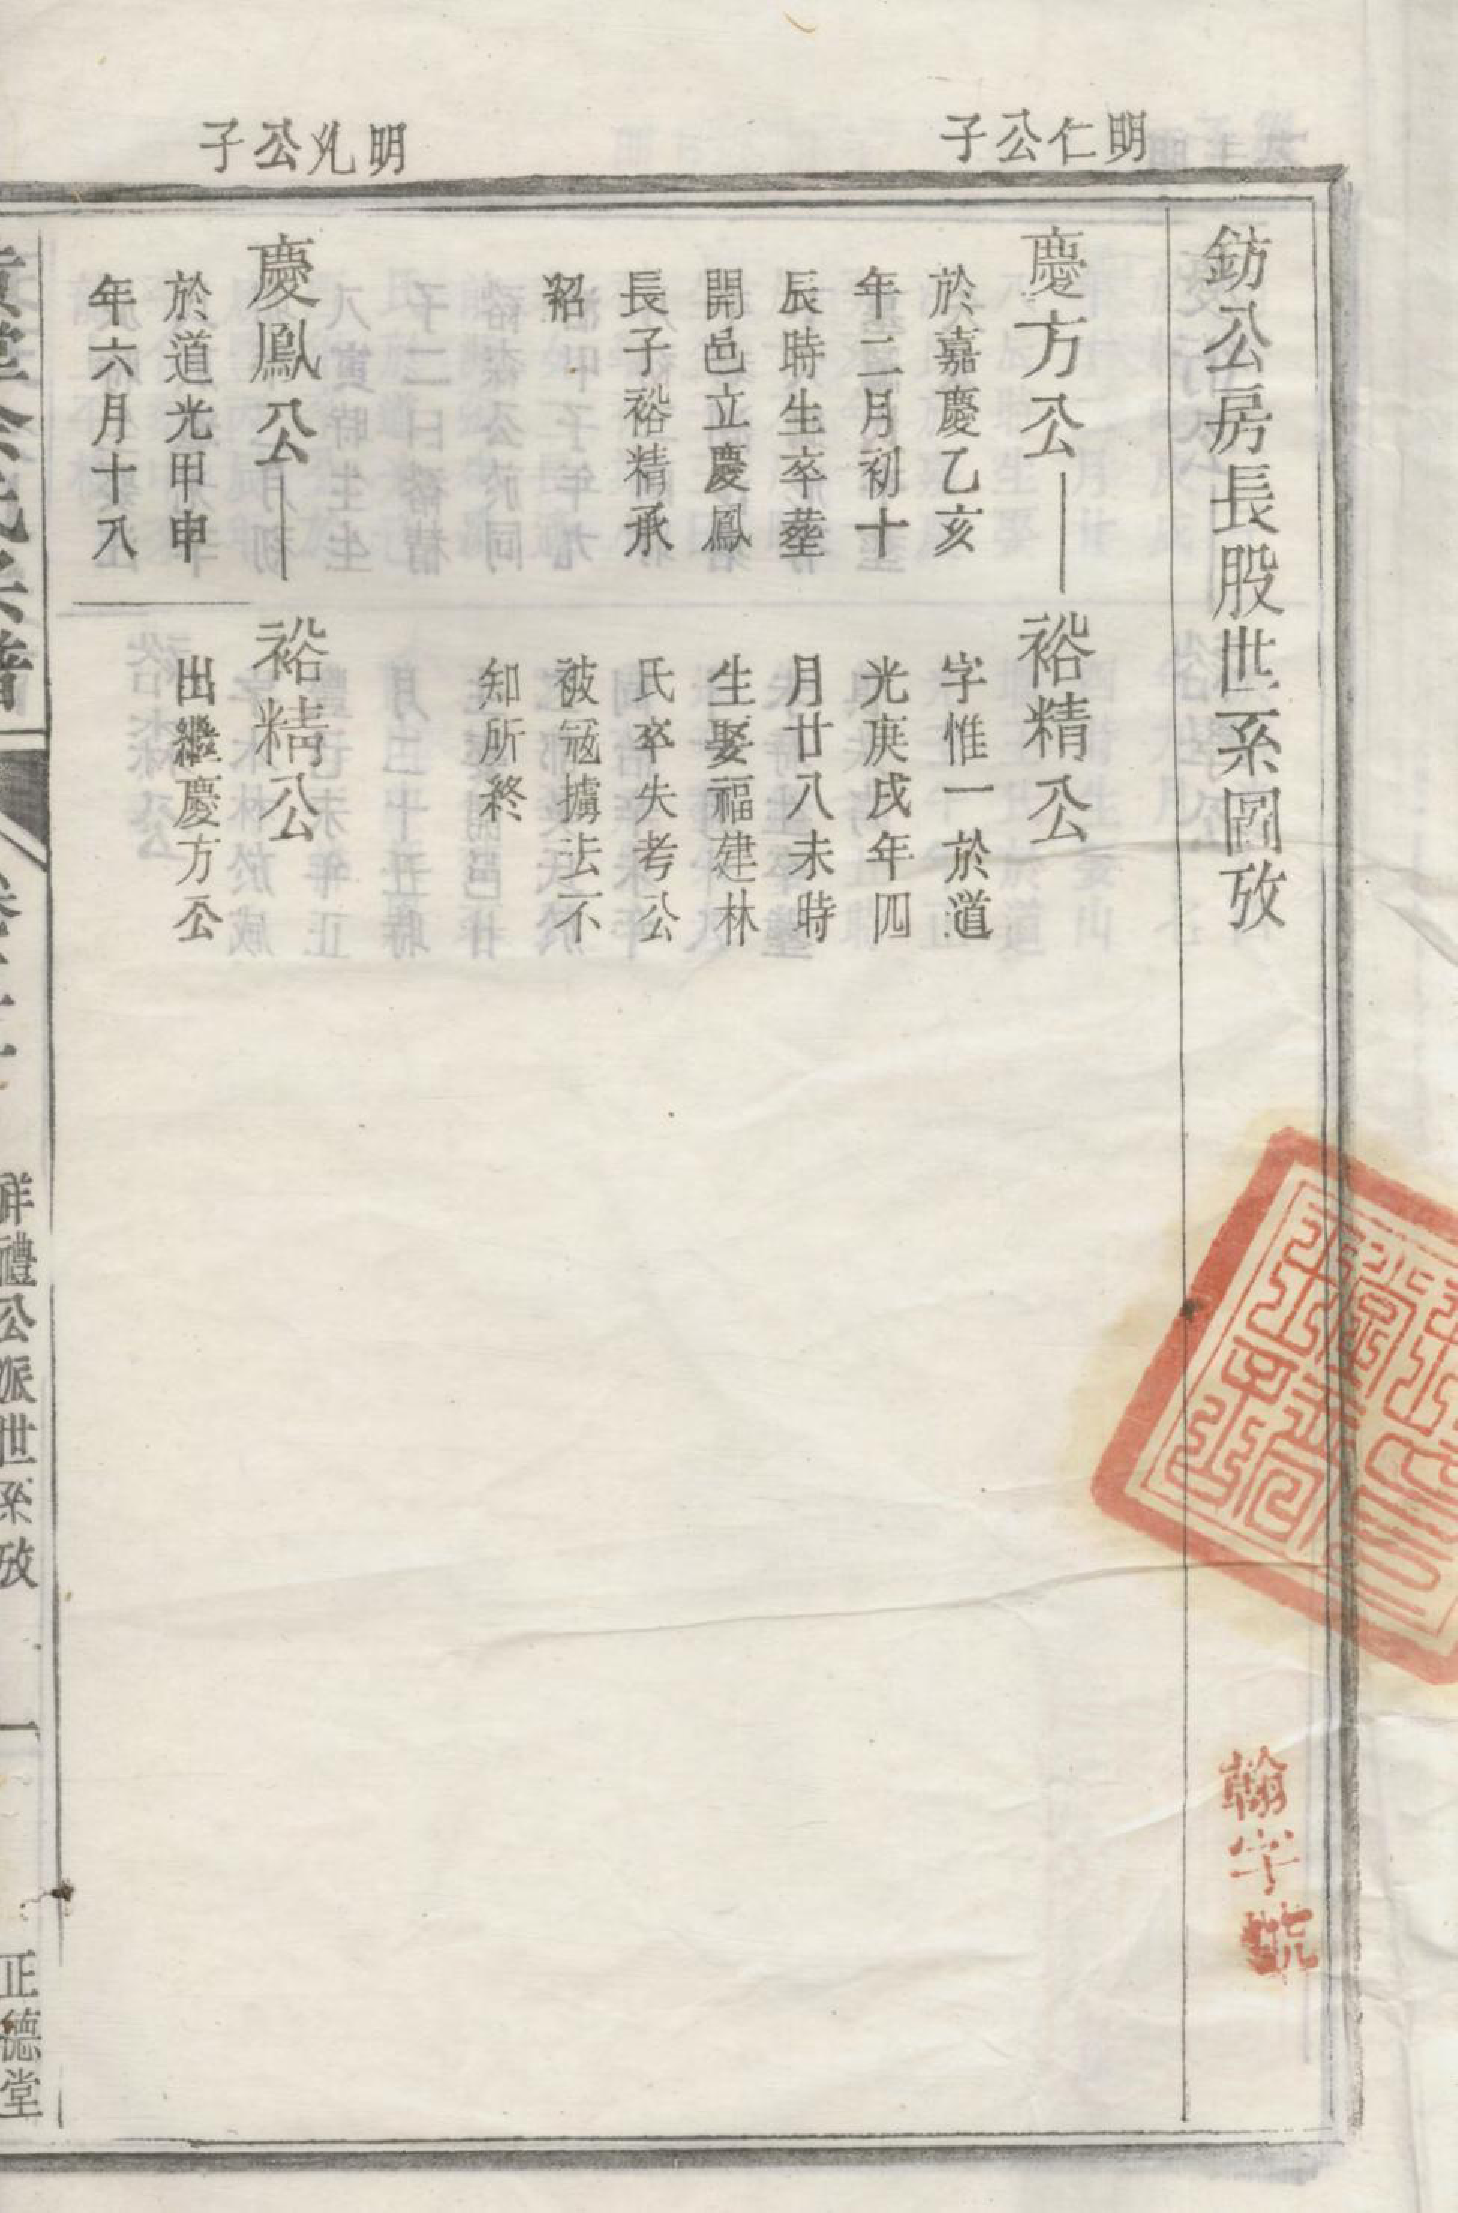 鈁公房長股世系圖攷
明仁公子
慶方公
於嘉慶乙亥
年二月初十
辰時生卒塟
開邑立慶鳳
長子裕精承
裕精公
字惟一於道
光庚戌年四
月廿八未時
生娶福建林
氏卒失考公
被冦擄去不
知所終
慶鳳公
於道光甲申
年六月十八
裕精公
出繼慶方公
祥禮公派世系攷
一
正德堂
翰字號